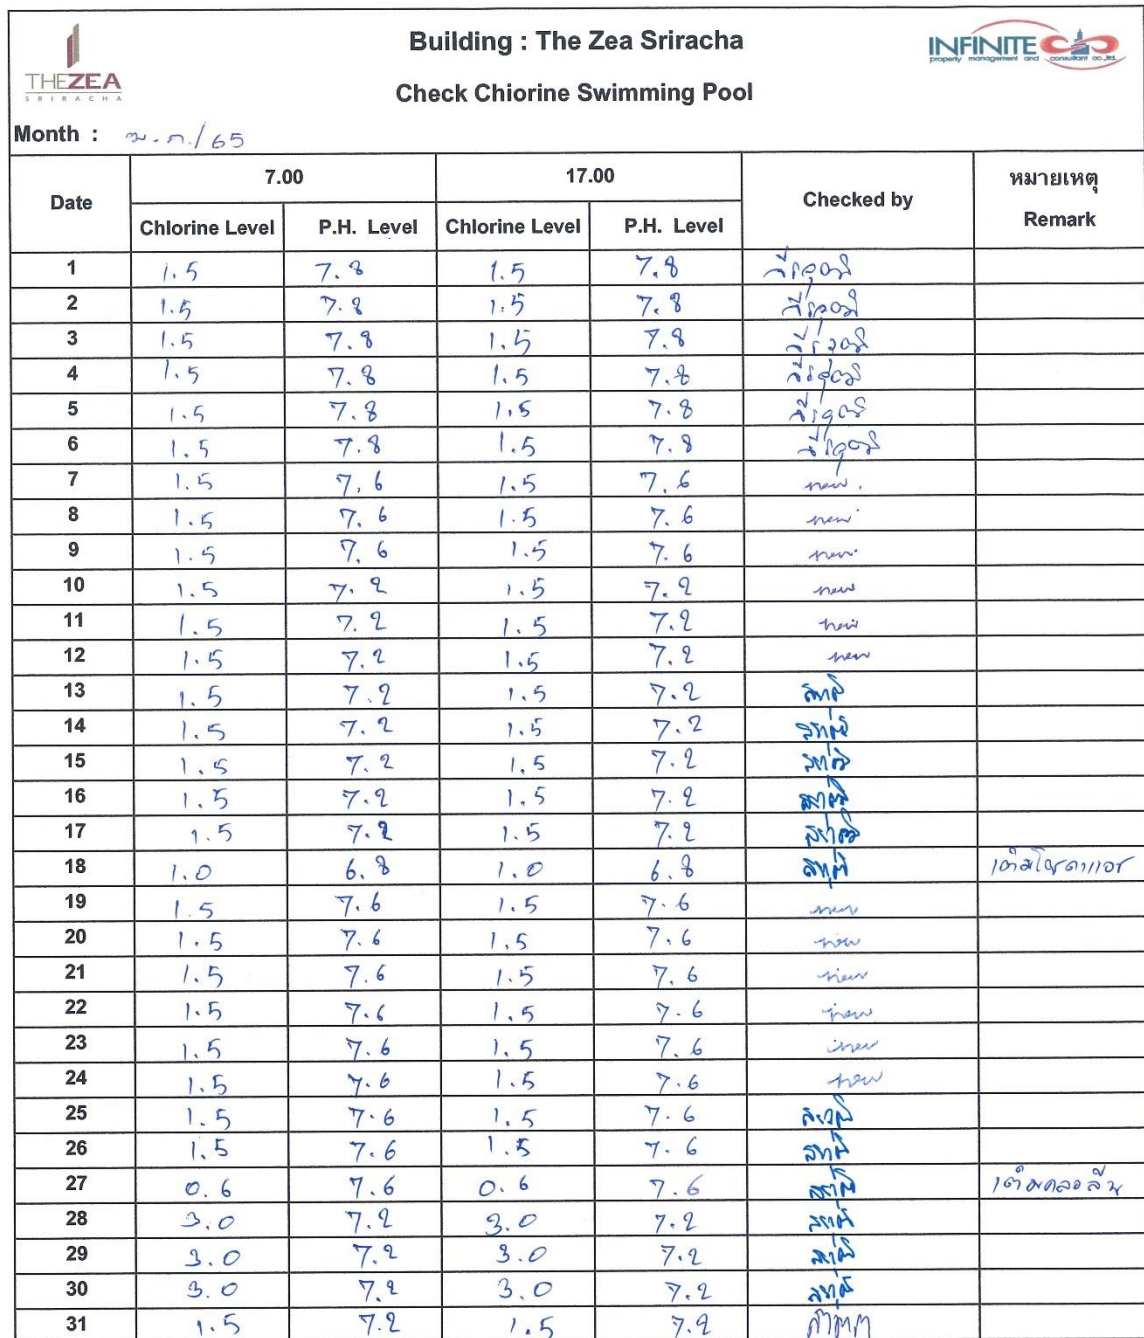 THE ZEA
SRIRACHA
Building : The Zea Sriracha
INFINITE
property management and consultant co.,ltd.
Check Chiorine Swimming Pool
Month : ม.ค./65
Date 7.00 17.00 Checked by หมายเหตุ Remark
Chlorine Level P.H. Level Chlorine Level P.H. Level
1 1.5 7.8 1.5 7.8
2 1.5 7.8 1.5 7.8
3 1.5 7.8 1.5 7.8
4 1.5 7.8 1.5 7.8
5 1.5 7.8 1.5 7.8
6 1.5 7.8 1.5 7.8
7 1.5 7.6 1.5 7.6
8 1.5 7.6 1.5 7.6
9 1.5 7.6 1.5 7.6
10 1.5 7.2 1.5 7.2
11 1.5 7.2 1.5 7.2
12 1.5 7.2 1.5 7.2
13 1.5 7.2 1.5 7.2
14 1.5 7.2 1.5 7.2
15 1.5 7.2 1.5 7.2
16 1.5 7.2 1.5 7.2
17 1.5 7.2 1.5 7.2
18 1.0 6.8 1.0 6.8 เติมโซดาแอช
19 1.5 7.6 1.5 7.6
20 1.5 7.6 1.5 7.6
21 1.5 7.6 1.5 7.6
22 1.5 7.6 1.5 7.6
23 1.5 7.6 1.5 7.6
24 1.5 7.6 1.5 7.6
25 1.5 7.6 1.5 7.6
26 1.5 7.6 1.5 7.6
27 0.6 7.6 0.6 7.6 เติมคลอลีน
28 3.0 7.2 3.0 7.2
29 3.0 7.2 3.0 7.2
30 3.0 7.2 3.0 7.2
31 1.5 7.2 1.5 7.2